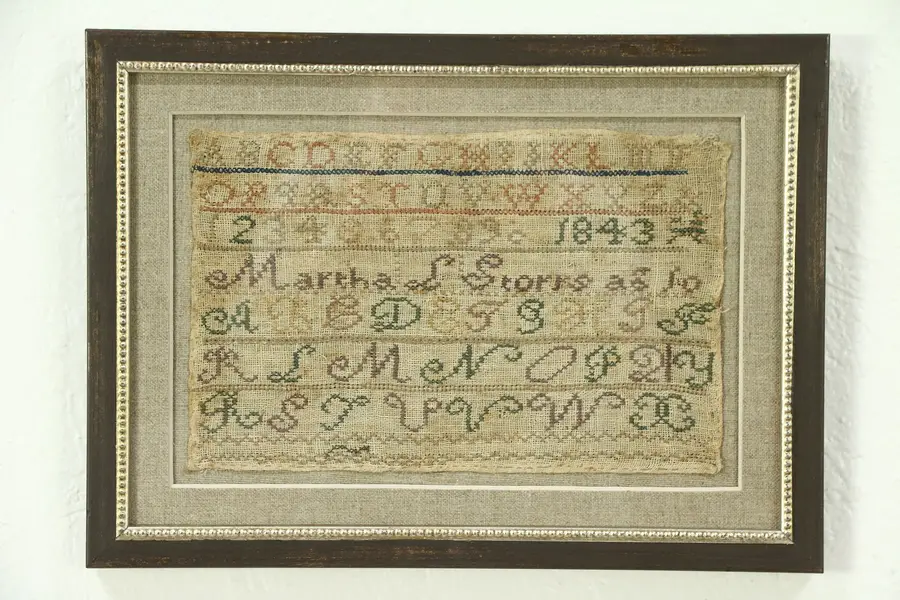 A B C D E F G H I J K L M
O P Q R S T U V W X Y Z
2 3 4 5 6 7 8 9 1843
Martha L Storrs ag 10
A B C D E F G H I J
K L M N O P Q Y
R S T U V W X